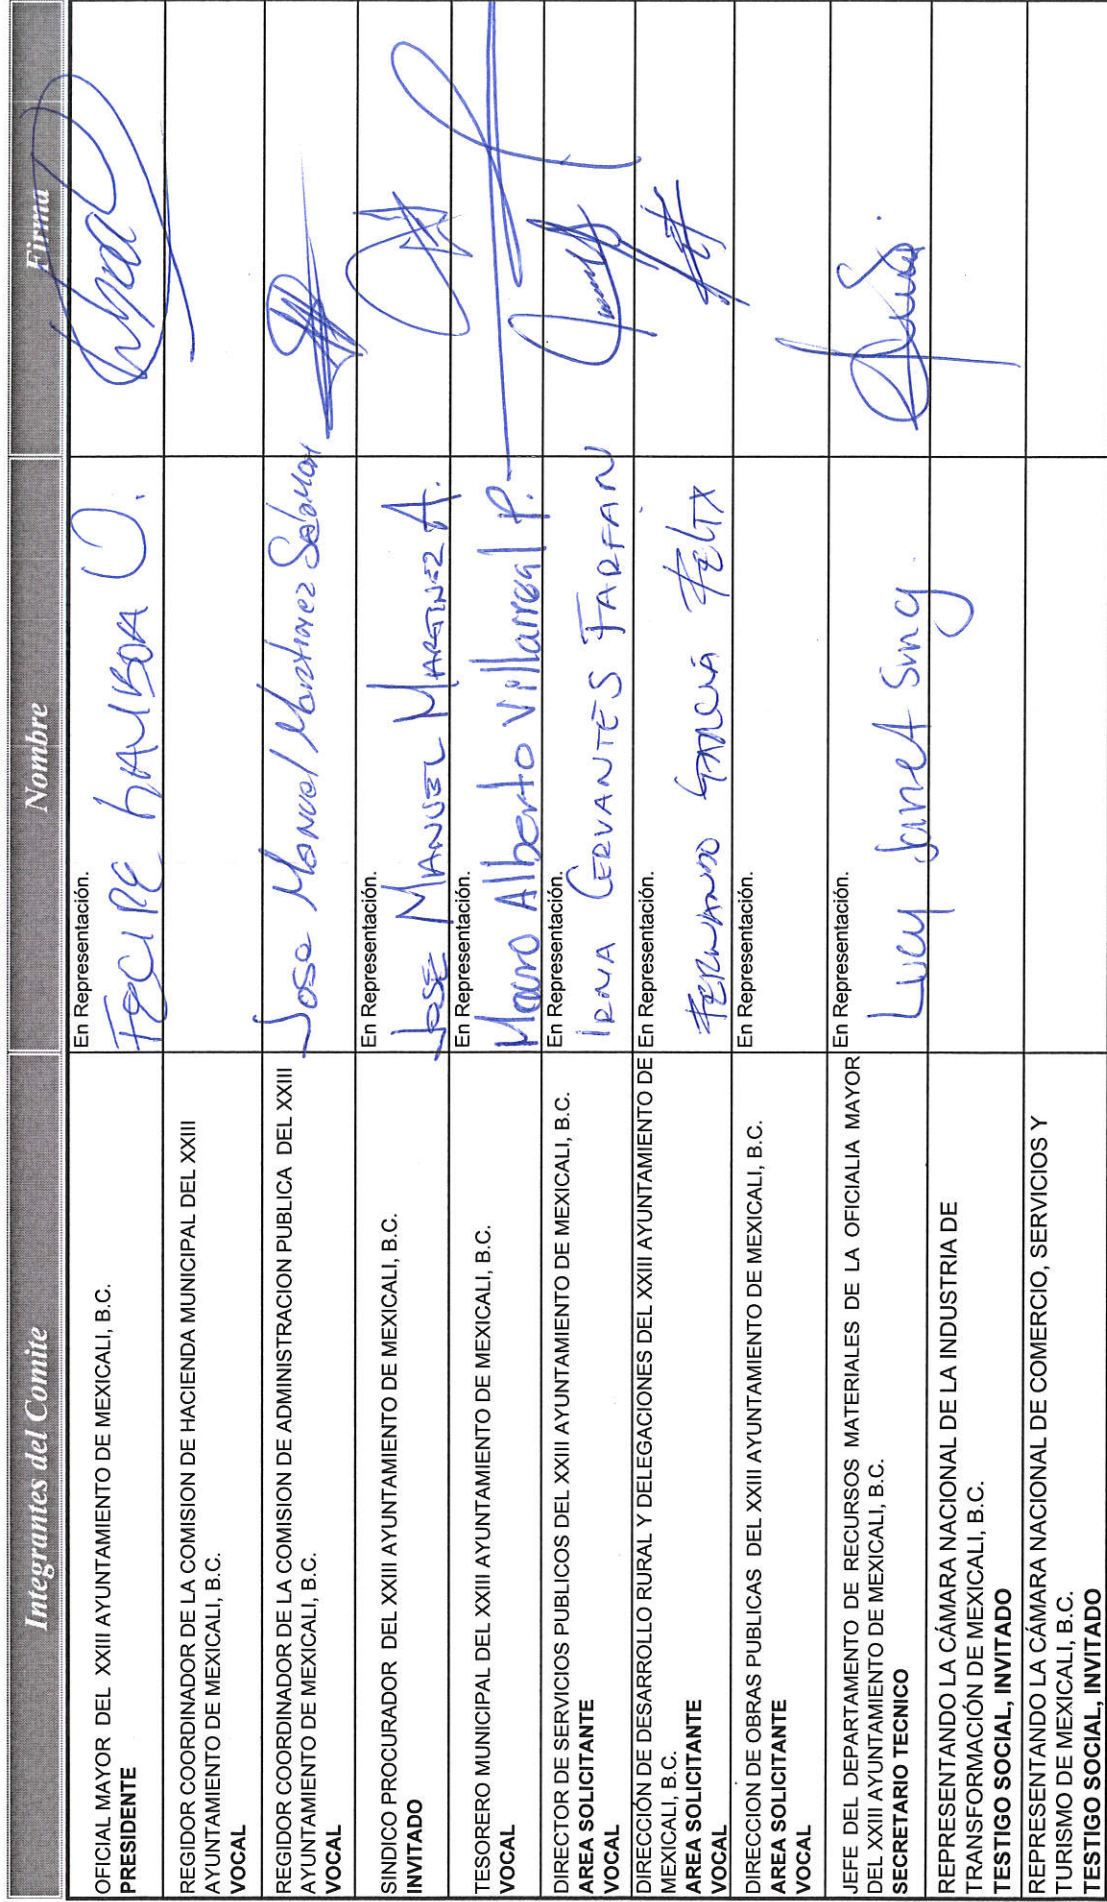 Integrantes del Comite
Nombre
Firma
OFICIAL MAYOR DEL XXIII AYUNTAMIENTO DE MEXICALI, B.C.
PRESIDENTE
En Representación.
REGIDOR COORDINADOR DE LA COMISION DE HACIENDA MUNICIPAL DEL XXIII
AYUNTAMIENTO DE MEXICALI, B.C.
VOCAL
REGIDOR COORDINADOR DE LA COMISION DE ADMINISTRACION PUBLICA DEL XXIII
AYUNTAMIENTO DE MEXICALI, B.C.
VOCAL
Jose Manuel Martinez Salomon
SINDICO PROCURADOR DEL XXIII AYUNTAMIENTO DE MEXICALI, B.C.
INVITADO
En Representación.
JOSÉ MANUEL MARTINEZ A.
TESORERO MUNICIPAL DEL XXIII AYUNTAMIENTO DE MEXICALI, B.C.
VOCAL
En Representación.
Mauro Alberto Villarreal P.
DIRECTOR DE SERVICIOS PUBLICOS DEL XXIII AYUNTAMIENTO DE MEXICALI, B.C.
AREA SOLICITANTE
VOCAL
En Representación.
IRMA CERVANTES FARFAN
DIRECCIÓN DE DESARROLLO RURAL Y DELEGACIONES DEL XXIII AYUNTAMIENTO DE
MEXICALI, B.C.
AREA SOLICITANTE
VOCAL
En Representación.
FERNANDO GARCIA FELIX
DIRECCION DE OBRAS PUBLICAS DEL XXIII AYUNTAMIENTO DE MEXICALI, B.C.
AREA SOLICITANTE
VOCAL
En Representación.
JEFE DEL DEPARTAMENTO DE RECURSOS MATERIALES DE LA OFICIALIA MAYOR
DEL XXIII AYUNTAMIENTO DE MEXICALI, B.C.
SECRETARIO TECNICO
En Representación.
Lucy Janet Sing
REPRESENTANDO LA CÁMARA NACIONAL DE LA INDUSTRIA DE
TRANSFORMACIÓN DE MEXICALI, B.C.
TESTIGO SOCIAL, INVITADO
REPRESENTANDO LA CÁMARA NACIONAL DE COMERCIO, SERVICIOS Y
TURISMO DE MEXICALI, B.C.
TESTIGO SOCIAL, INVITADO